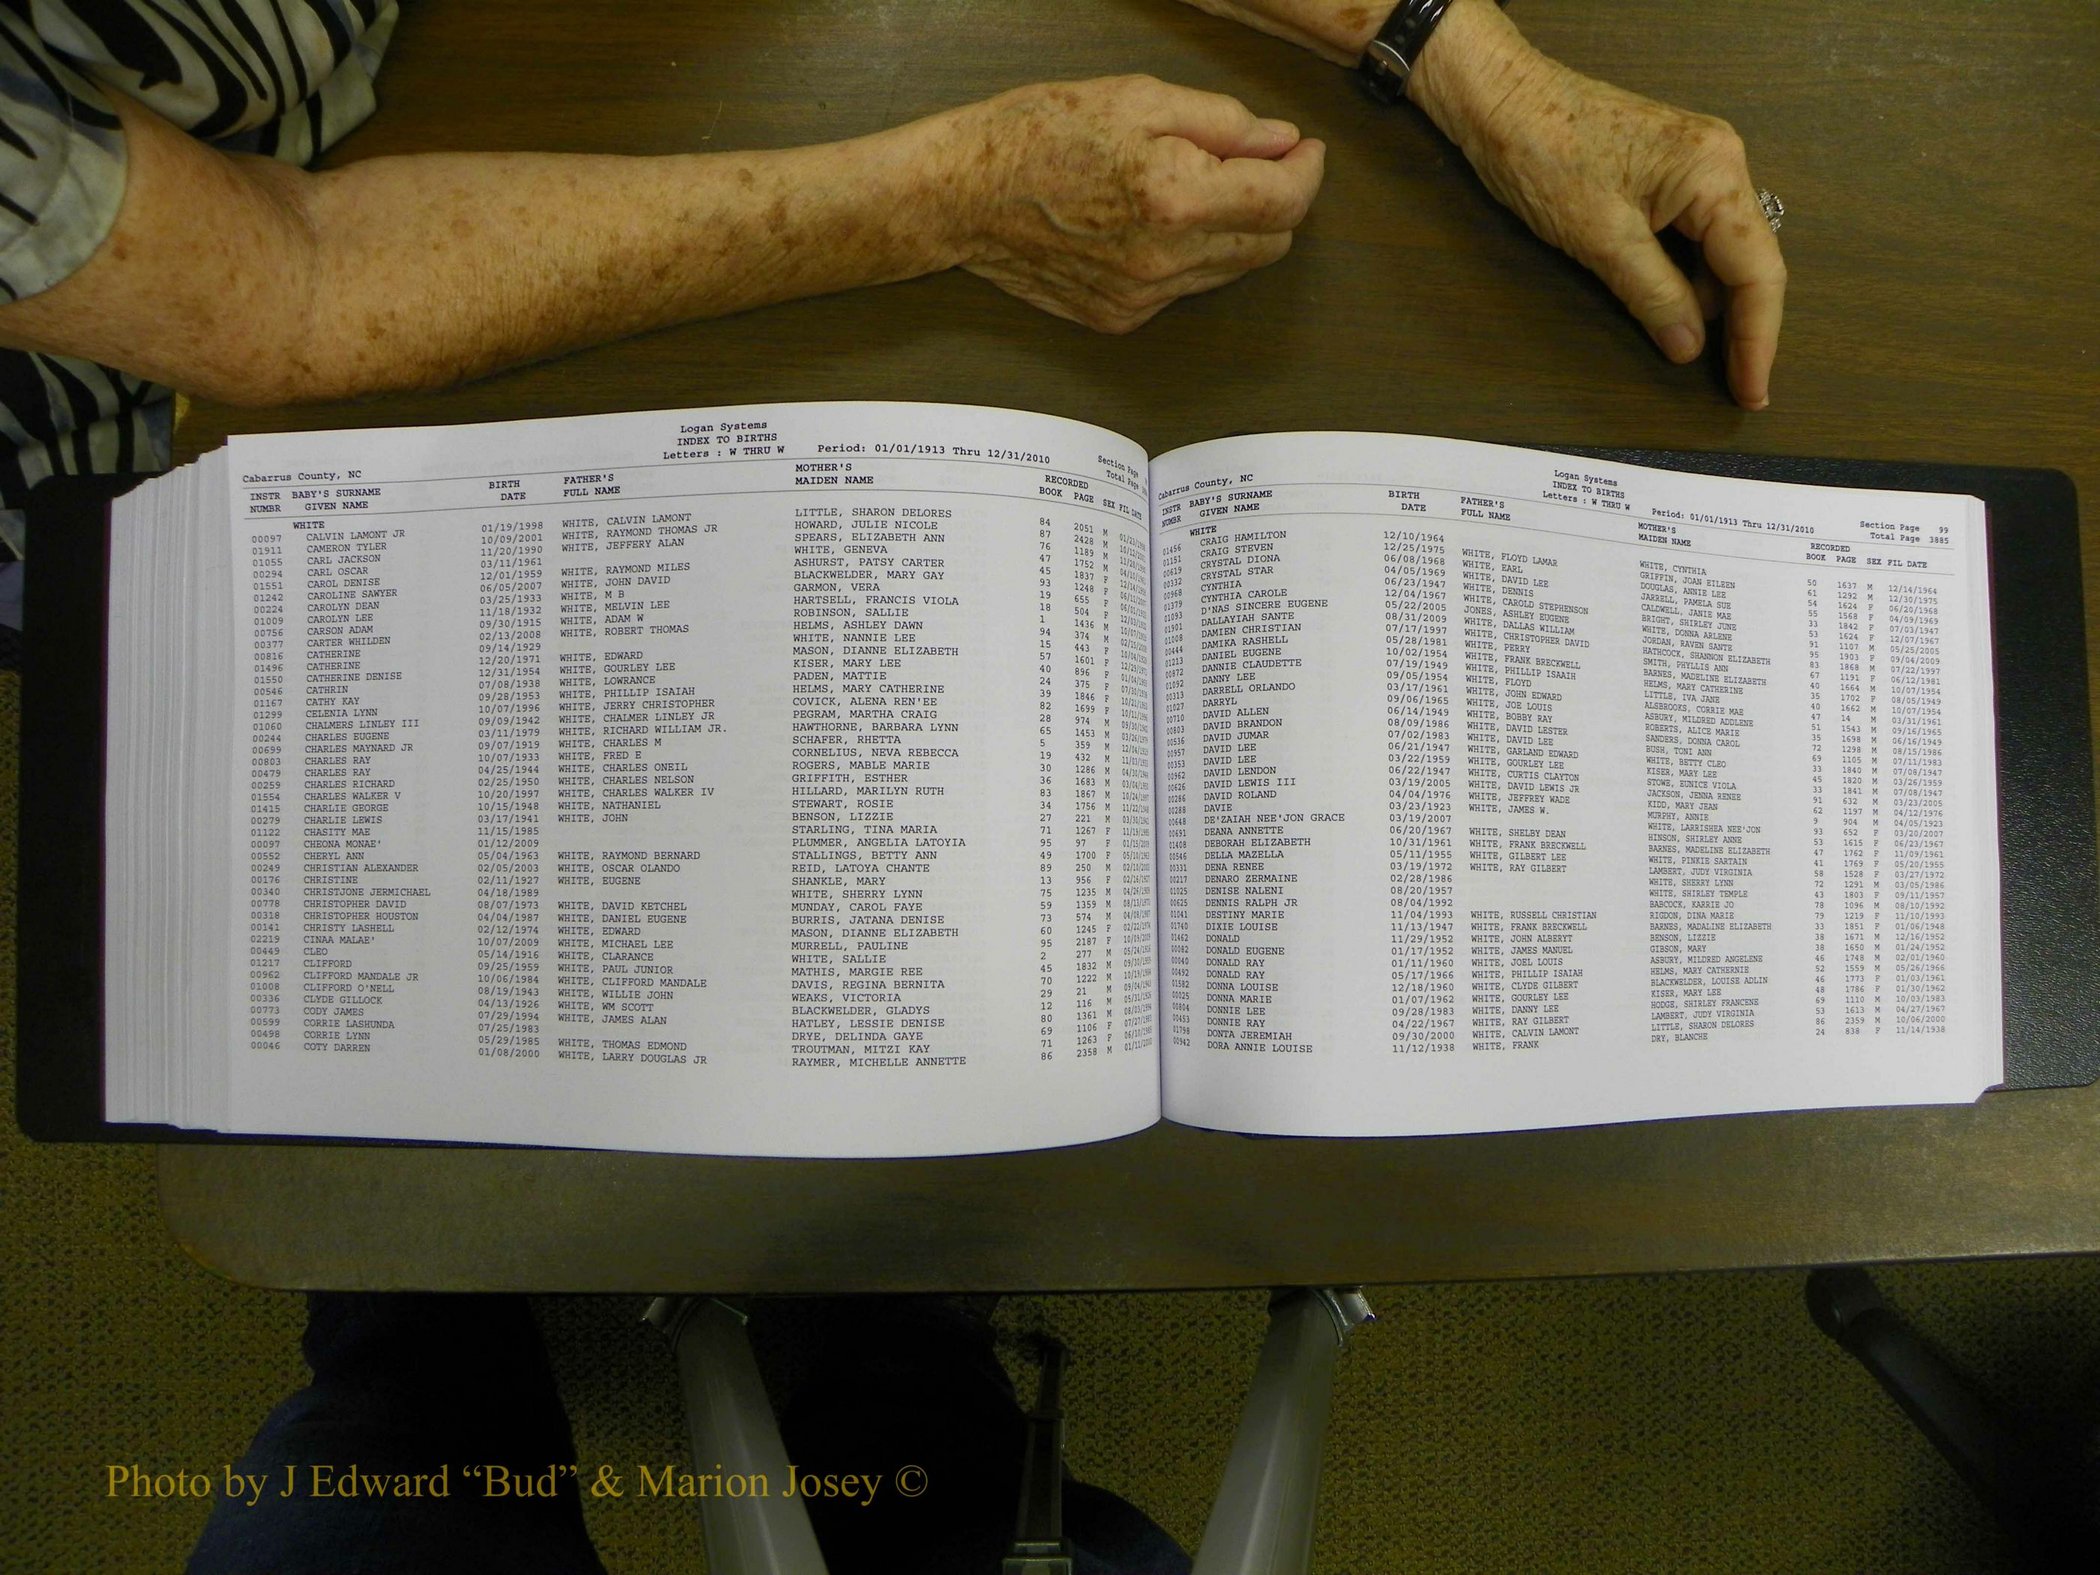 Logan Systems
INDEX TO BIRTHS
Letters : W THRU W Period: 01/01/1913 Thru 12/31/2010
Cabarrus County, NC Section Page
Total Page
INSTR BABY'S SURNAME BIRTH FATHER'S MOTHER'S RECORDED
NUMBR GIVEN NAME DATE FULL NAME MAIDEN NAME BOOK PAGE SEX FIL DATE
WHITE
00097 CALVIN LAMONT JR 01/19/1998 WHITE, CALVIN LAMONT LITTLE, SHARON DELORES 84 2051 M
01911 CAMERON TYLER 10/09/2001 WHITE, RAYMOND THOMAS JR HOWARD, JULIE NICOLE 87 2428 M
01055 CARL JACKSON 11/20/1990 WHITE, JEFFERY ALAN SPEARS, ELIZABETH ANN 76 1189 M
00294 CARL OSCAR 03/11/1961 WHITE, GENEVA 47 1752 M
01551 CAROL DENISE 12/01/1959 WHITE, RAYMOND MILES ASHURST, PATSY CARTER 45 1837 F
01242 CAROLINE SAWYER 06/05/2007 WHITE, JOHN DAVID BLACKWELDER, MARY GAY 93 1248 F
00224 CAROLYN DEAN 03/25/1933 WHITE, M B GARMON, VERA 19 655 F
01009 CAROLYN LEE 11/18/1932 WHITE, MELVIN LEE HARTSELL, FRANCIS VIOLA 18 504 F
00756 CARSON ADAM 09/30/1915 WHITE, ADAM W ROBINSON, SALLIE 1 1436 M
00377 CARTER WHILDEN 02/13/2008 WHITE, ROBERT THOMAS HELMS, ASHLEY DAWN 94 374 M
00816 CATHERINE 09/14/1929 WHITE, NANNIE LEE 15 443 F
01496 CATHERINE 12/20/1971 WHITE, EDWARD MASON, DIANNE ELIZABETH 57 1601 F
01550 CATHERINE DENISE 12/31/1954 WHITE, GOURLEY LEE KISER, MARY LEE 40 896 F
00546 CATHRIN 07/08/1938 WHITE, LOWRANCE PADEN, MATTIE 24 375 F
01167 CATHY KAY 09/28/1953 WHITE, PHILLIP ISAIAH HELMS, MARY CATHERINE 39 1846 F
01299 CELENIA LYNN 10/07/1996 WHITE, JERRY CHRISTOPHER COVICK, ALENA REN'EE 82 1699 F
01060 CHALMERS LINLEY III 09/09/1942 WHITE, CHALMER LINLEY JR PEGRAM, MARTHA CRAIG 28 974 M
00244 CHARLES EUGENE 03/11/1979 WHITE, RICHARD WILLIAM JR. HAWTHORNE, BARBARA LYNN 65 1453 M
00699 CHARLES MAYNARD JR 09/07/1919 WHITE, CHARLES M SCHAFER, RHETTA 5 359 M
00803 CHARLES RAY 10/07/1933 WHITE, FRED E CORNELIUS, NEVA REBECCA 19 432 M
00479 CHARLES RAY 04/25/1944 WHITE, CHARLES ONEIL ROGERS, MABLE MARIE 30 1286 M
00259 CHARLES RICHARD 02/25/1950 WHITE, CHARLES NELSON GRIFFITH, ESTHER 36 1683 M
01554 CHARLES WALKER V 10/20/1997 WHITE, CHARLES WALKER IV HILLARD, MARILYN RUTH 83 1867 M
01415 CHARLIE GEORGE 10/15/1948 WHITE, NATHANIEL STEWART, ROSIE 34 1756 M
00279 CHARLIE LEWIS 03/17/1941 WHITE, JOHN BENSON, LIZZIE 27 221 M
01122 CHASITY MAE 11/15/1985 STARLING, TINA MARIA 71 1267 F
00097 CHEONA MONAE' 01/12/2009 PLUMMER, ANGELIA LATOYIA 95 97 F
00552 CHERYL ANN 05/04/1963 WHITE, RAYMOND BERNARD STALLINGS, BETTY ANN 49 1700 F
00249 CHRISTIAN ALEXANDER 02/05/2003 WHITE, OSCAR OLANDO REID, LATOYA CHANTE 89 250 M
00176 CHRISTINE 02/11/1927 WHITE, EUGENE SHANKLE, MARY 13 956 F
00340 CHRISTJONE JERMICHAEL 04/18/1989 WHITE, SHERRY LYNN 75 1235 M
00778 CHRISTOPHER DAVID 08/07/1973 WHITE, DAVID KETCHEL MUNDAY, CAROL FAYE 59 1359 M
00318 CHRISTOPHER HOUSTON 04/04/1987 WHITE, DANIEL EUGENE BURRIS, JATANA DENISE 73 574 M
00141 CHRISTY LASHELL 02/12/1974 WHITE, EDWARD MASON, DIANNE ELIZABETH 60 1245 F
02219 CINAA MALAE' 10/07/2009 WHITE, MICHAEL LEE MURRELL, PAULINE 95 2187 F
00449 CLEO 05/14/1916 WHITE, CLARANCE WHITE, SALLIE 2 277 M
01217 CLIFFORD 09/25/1959 WHITE, PAUL JUNIOR MATHIS, MARGIE REE 45 1832 M
00962 CLIFFORD MANDALE JR 10/06/1984 WHITE, CLIFFORD MANDALE DAVIS, REGINA BERNITA 70 1222 M
01008 CLIFFORD O'NELL 08/19/1943 WHITE, WILLIE JOHN WEAKS, VICTORIA 29 21 M
00336 CLYDE GILLOCK 04/13/1926 WHITE, WM SCOTT BLACKWELDER, GLADYS 12 116 M
00773 CODY JAMES 07/29/1994 WHITE, JAMES ALAN HATLEY, LESSIE DENISE 80 1361 M
00599 CORRIE LASHUNDA 07/25/1983 DRYE, DELINDA GAYE 69 1106 F
00498 CORRIE LYNN 05/29/1985 WHITE, THOMAS EDMOND TROUTMAN, MITZI KAY 71 1263 F
00046 COTY DARREN 01/08/2000 WHITE, LARRY DOUGLAS JR RAYMER, MICHELLE ANNETTE 86 2358 M
Logan Systems
INDEX TO BIRTHS
Letters : W THRU W Period: 01/01/1913 Thru 12/31/2010
Cabarrus County, NC Section Page 99
Total Page 3885
INSTR BABY'S SURNAME BIRTH FATHER'S MOTHER'S RECORDED
NUMBR GIVEN NAME DATE FULL NAME MAIDEN NAME BOOK PAGE SEX FIL DATE
WHITE
01456 CRAIG HAMILTON 12/10/1964 WHITE, CYNTHIA 50 1637 M 12/14/1964
01151 CRAIG STEVEN 12/25/1975 WHITE, FLOYD LAMAR GRIFFIN, JOAN EILEEN 61 1292 M 12/30/1975
00619 CRYSTAL DIONA 06/08/1968 WHITE, EARL DOUGLAS, ANNIE LEE 54 1624 F 06/20/1968
00332 CRYSTAL STAR 04/05/1969 WHITE, DAVID LEE JARRELL, PAMELA SUE 55 1568 F 04/09/1969
00968 CYNTHIA 06/23/1947 WHITE, DENNIS CALDWELL, JANIE MAE 33 1842 F 07/03/1947
01379 CYNTHIA CAROLE 12/04/1967 WHITE, CAROLD STEPHENSON BRIGHT, SHIRLEY JUNE 53 1624 F 12/07/1967
01093 D'NAS SINCERE EUGENE 05/22/2005 JONES, ASHLEY EUGENE WHITE, DONNA ARLENE 91 1107 M 05/25/2005
01901 DALLAYIAH SANTE 08/31/2009 WHITE, DALLAS WILLIAM JORDAN, RAVEN SANTE 95 1903 F 09/04/2009
01008 DAMIEN CHRISTIAN 07/17/1997 WHITE, CHRISTOPHER DAVID HATHCOCK, SHANNON ELIZABETH 83 1868 M 07/22/1997
00444 DAMIKA RASHELL 05/28/1981 WHITE, PERRY SMITH, PHYLLIS ANN 67 1191 F 06/12/1981
01213 DANIEL EUGENE 10/02/1954 WHITE, FRANK BRECKWELL BARNES, MADELINE ELIZABETH 40 1664 M 10/07/1954
00872 DANNIE CLAUDETTE 07/19/1949 WHITE, PHILLIP ISAAIH HELMS, MARY CATHERINE 35 1702 F 08/05/1949
01092 DANNY LEE 09/05/1954 WHITE, FLOYD LITTLE, IVA JANE 40 1662 M 10/07/1954
00313 DARRELL ORLANDO 03/17/1961 WHITE, JOHN EDWARD ALSBROOKS, CORRIE MAE 47 14 M 03/31/1961
01027 DARRYL 09/06/1965 WHITE, JOE LOUIS ASBURY, MILDRED ADDLENE 51 1543 M 09/16/1965
00710 DAVID ALLEN 06/14/1949 WHITE, BOBBY RAY ROBERTS, ALICE MARIE 35 1698 M 06/16/1949
00803 DAVID BRANDON 08/09/1986 WHITE, DAVID LESTER SANDERS, DONNA CAROL 72 1298 M 08/15/1986
00536 DAVID JUMAR 07/02/1983 WHITE, DAVID LEE BUSH, TONI ANN 69 1105 M 07/11/1983
00957 DAVID LEE 06/21/1947 WHITE, GARLAND EDWARD WHITE, BETTY CLEO 33 1840 M 07/08/1947
00353 DAVID LEE 03/22/1959 WHITE, GOURLEY LEE KISER, MARY LEE 45 1820 M 03/26/1959
00962 DAVID LENDON 06/22/1947 WHITE, CURTIS CLAYTON STOWE, EUNICE VIOLA 33 1841 M 07/08/1947
00626 DAVID LEWIS III 03/19/2005 WHITE, DAVID LEWIS JR JACKSON, JENNA RENEE 91 632 M 03/23/2005
00286 DAVID ROLAND 04/04/1976 WHITE, JEFFREY WADE KIDD, MARY JEAN 62 1197 M 04/12/1976
00288 DAVIE 03/23/1923 WHITE, JAMES W. MURPHY, ANNIE 9 904 M 04/05/1923
00648 DE'ZAIAH NEE'JON GRACE 03/19/2007 WHITE, LARRISHEA NEE'JON 93 652 F 03/20/2007
00691 DEANA ANNETTE 06/20/1967 WHITE, SHELBY DEAN HINSON, SHIRLEY ANNE 53 1615 F 06/23/1967
01408 DEBORAH ELIZABETH 10/31/1961 WHITE, FRANK BRECKWELL BARNES, MADELINE ELIZABETH 47 1762 F 11/09/1961
00546 DELLA MAZELLA 05/11/1955 WHITE, GILBERT LEE WHITE, PINKIE SARTAIN 41 1769 F 05/20/1955
00331 DENA RENEE 03/19/1972 WHITE, RAY GILBERT LAMBERT, JUDY VIRGINIA 58 1528 F 03/27/1972
00217 DENARO ZERMAINE 02/28/1986 WHITE, SHERRY LYNN 72 1291 M 03/05/1986
01025 DENISE NALENI 08/20/1957 WHITE, SHIRLEY TEMPLE 43 1803 F 09/11/1957
00625 DENNIS RALPH JR 08/04/1992 BABCOCK, KARRIE JO 78 1096 M 08/10/1992
01041 DESTINY MARIE 11/04/1993 WHITE, RUSSELL CHRISTIAN RIGDON, DINA MARIE 79 1219 F 11/10/1993
01740 DIXIE LOUISE 11/13/1947 WHITE, FRANK BRECKWELL BARNES, MADALINE ELIZABETH 33 1851 F 01/06/1948
01462 DONALD 11/29/1952 WHITE, JOHN ALBERYT BENSON, LIZZIE 38 1671 M 12/16/1952
00082 DONALD EUGENE 01/17/1952 WHITE, JAMES MANUEL GIBSON, MARY 38 1650 M 01/24/1952
00040 DONALD RAY 01/11/1960 WHITE, JOEL LOUIS ASBURY, MILDRED ANGELENE 46 1748 M 02/01/1960
00492 DONALD RAY 05/17/1966 WHITE, PHILLIP ISAIAH HELMS, MARY CATHERNIE 52 1559 M 05/26/1966
01582 DONNA LOUISE 12/18/1960 WHITE, CLYDE GILBERT BLACKWELDER, LOUISE ADLIN 46 1773 F 01/03/1961
00025 DONNA MARIE 01/07/1962 WHITE, GOURLEY LEE KISER, MARY LEE 48 1786 F 01/30/1962
00804 DONNIE LEE 09/28/1983 WHITE, DANNY LEE HODGE, SHIRLEY FRANCENE 69 1110 M 10/03/1983
00453 DONNIE RAY 04/22/1967 WHITE, RAY GILBERT LAMBERT, JUDY VIRGINIA 53 1613 M 04/27/1967
01798 DONTA JEREMIAH 09/30/2000 WHITE, CALVIN LAMONT LITTLE, SHARON DELORES 86 2359 M 10/06/2000
00942 DORA ANNIE LOUISE 11/12/1938 WHITE, FRANK DRY, BLANCHE 24 838 F 11/14/1938
Photo by J Edward “Bud” & Marion Josey ©